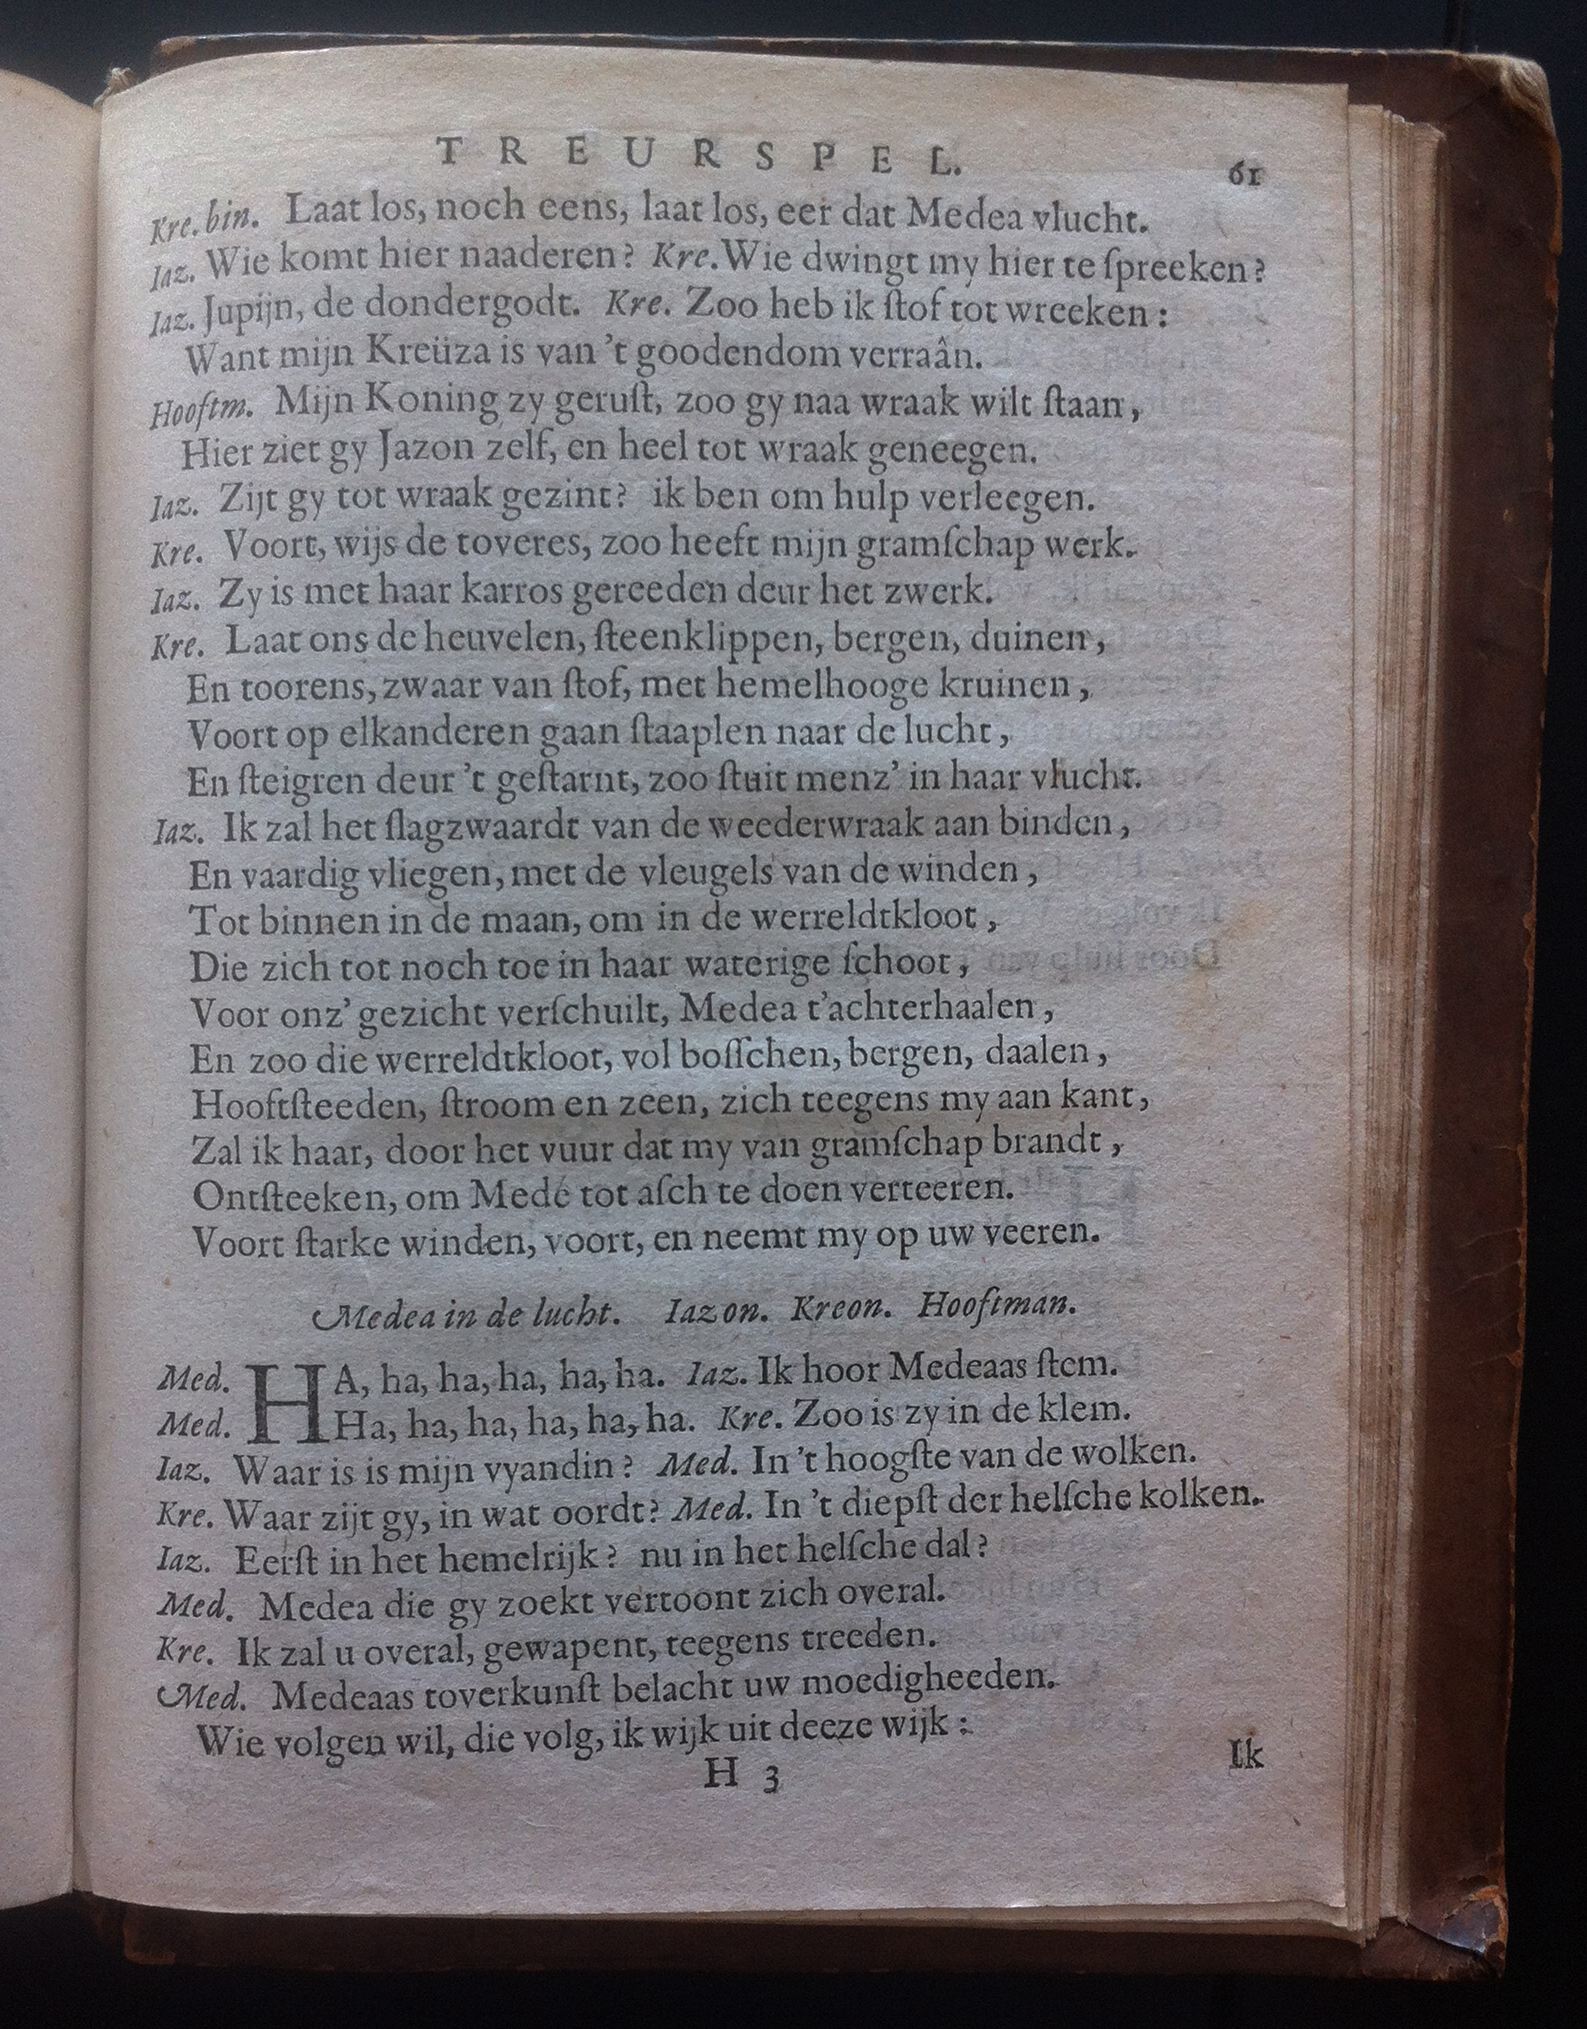 TREURSPEL. 61
Kre. bin. Laat los, noch eens, laat los, eer dat Medea vlucht.
Iaz. Wie komt hier naaderen? Kre. Wie dwingt my hier te ſpreeken?
Iaz. Jupijn, de dondergodt. Kre. Zoo heb ik ſtof tot wreeken:
Want mijn Kreüza is van 't goodendom verraân.
Hooftm. Mijn Koning zy geruſt, zoo gy naa wraak wilt ſtaan,
Hier ziet gy Jazon zelf, en heel tot wraak geneegen.
Iaz. Zijt gy tot wraak gezint? ik ben om hulp verleegen.
Kre. Voort, wijs de toveres, zoo heeft mijn gramſchap werk.
Iaz. Zy is met haar karros gereeden deur het zwerk.
Kre. Laat ons de heuvelen, ſteenklippen, bergen, duinen,
En toorens, zwaar van ſtof, met hemelhooge kruinen,
Voort op elkanderen gaan ſtaaplen naar de lucht,
En ſteigren deur 't geſtarnt, zoo ſtuit menz' in haar vlucht.
Iaz. Ik zal het ſlagzwaardt van de weederwraak aan binden,
En vaardig vliegen, met de vleugels van de winden,
Tot binnen in de maan, om in de werreldtkloot,
Die zich tot noch toe in haar waterige ſchoot,
Voor onz' gezicht verſchuilt, Medea t'achterhaalen,
En zoo die werreldtkloot, vol boſſchen, bergen, daalen,
Hooftſteeden, ſtroom en zeen, zich teegens my aan kant,
Zal ik haar, door het vuur dat my van gramſchap brandt,
Ontſteeken, om Medé tot aſch te doen verteeren.
Voort ſtarke winden, voort, en neemt my op uw veeren.
Medea in de lucht. Iazon. Kreon. Hooftman.
Med. HA, ha, ha, ha, ha, ha. Iaz. Ik hoor Medeaas ſtem.
Med. Ha, ha, ha, ha, ha, ha. Kre. Zoo is zy in de klem.
Iaz. Waar is is mijn vyandin? Med. In 't hoogſte van de wolken.
Kre. Waar zijt gy, in wat oordt? Med. In 't diepſt der helſche kolken.
Iaz. Eerſt in het hemelrijk? nu in het helſche dal?
Med. Medea die gy zoekt vertoont zich overal.
Kre. Ik zal u overal, gewapent, teegens treeden.
Med. Medeaas toverkunſt belacht uw moedigheeden.
Wie volgen wil, die volg, ik wijk uit deeze wijk:
H 3 Ik